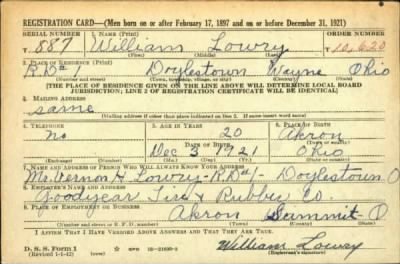 REGISTRATION CARD—(Men born on or after February 17, 1897 and on or before December 31, 1921)
SERIAL NUMBER 1. NAME (Print) ORDER NUMBER
T 887 William Lowry T 10,620
(First) (Middle) (Last)
2. PLACE OF RESIDENCE (Print)
R.D.#1 Doylestown Wayne Ohio
(Number and street) (Town, township, village, or city) (County) (State)
[THE PLACE OF RESIDENCE GIVEN ON THE LINE ABOVE WILL DETERMINE LOCAL BOARD
JURISDICTION; LINE 2 OF REGISTRATION CERTIFICATE WILL BE IDENTICAL]
3. MAILING ADDRESS
same
[Mailing address if other than place indicated on line 2. If same insert word same]
4. TELEPHONE 5. AGE IN YEARS 6. PLACE OF BIRTH
no 20 Akron
DATE OF BIRTH
Dec 3 1921 Ohio
(Mo.) (Day) (Yr.) (State or country)
7. NAME AND ADDRESS OF PERSON WHO WILL ALWAYS KNOW YOUR ADDRESS
Mr. Vernon H. Lowry - R.D.#1 - Doylestown O
8. EMPLOYER'S NAME AND ADDRESS
Goodyear Tire & Rubber Co.
9. PLACE OF EMPLOYMENT OR BUSINESS
Akron Summit - O
(Number and street or R. F. D. number) (Town) (County) (State)
I AFFIRM THAT I HAVE VERIFIED ABOVE ANSWERS AND THAT THEY ARE TRUE.
D. S. S. Form 1
(Revised 1-1-42) William Lowry
(Registrant's signature)